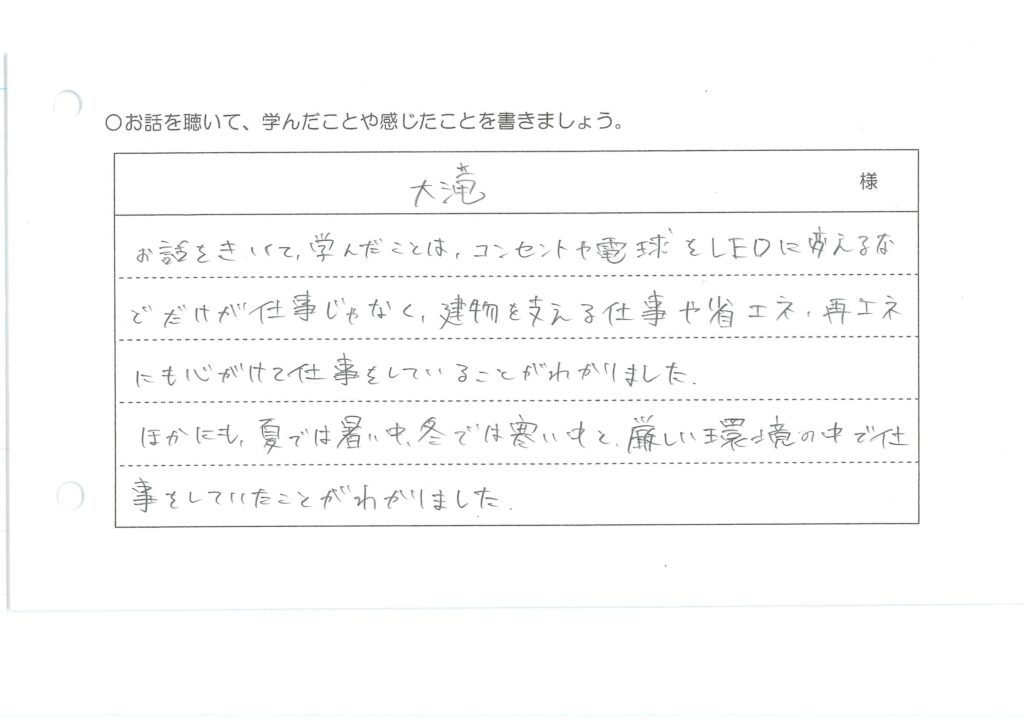 ○お話を聴いて、学んだことや感じたことを書きましょう。
大滝 様
お話をきいて,学んだことは,コンセントや電球をLEDに変えるな
どだけが仕事じゃなく,建物を支える仕事や省エネ,再エネ
にも心がけて仕事をしていることがわかりました.
ほかにも,夏では暑い中,冬では寒い中と,厳しい環境の中で仕
事をしていたことがわかりました.